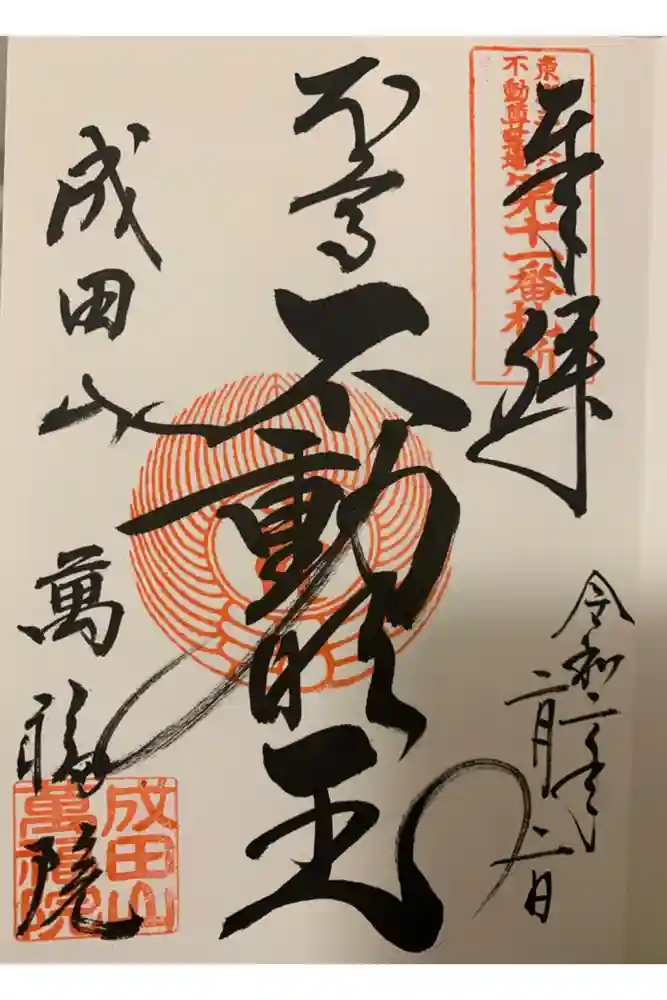 奉拝
東海三十六
不動尊霊場
第十一番札所
令和二年
二月二日
本尊
不動明王
成田山
萬福院
成田山
萬福院